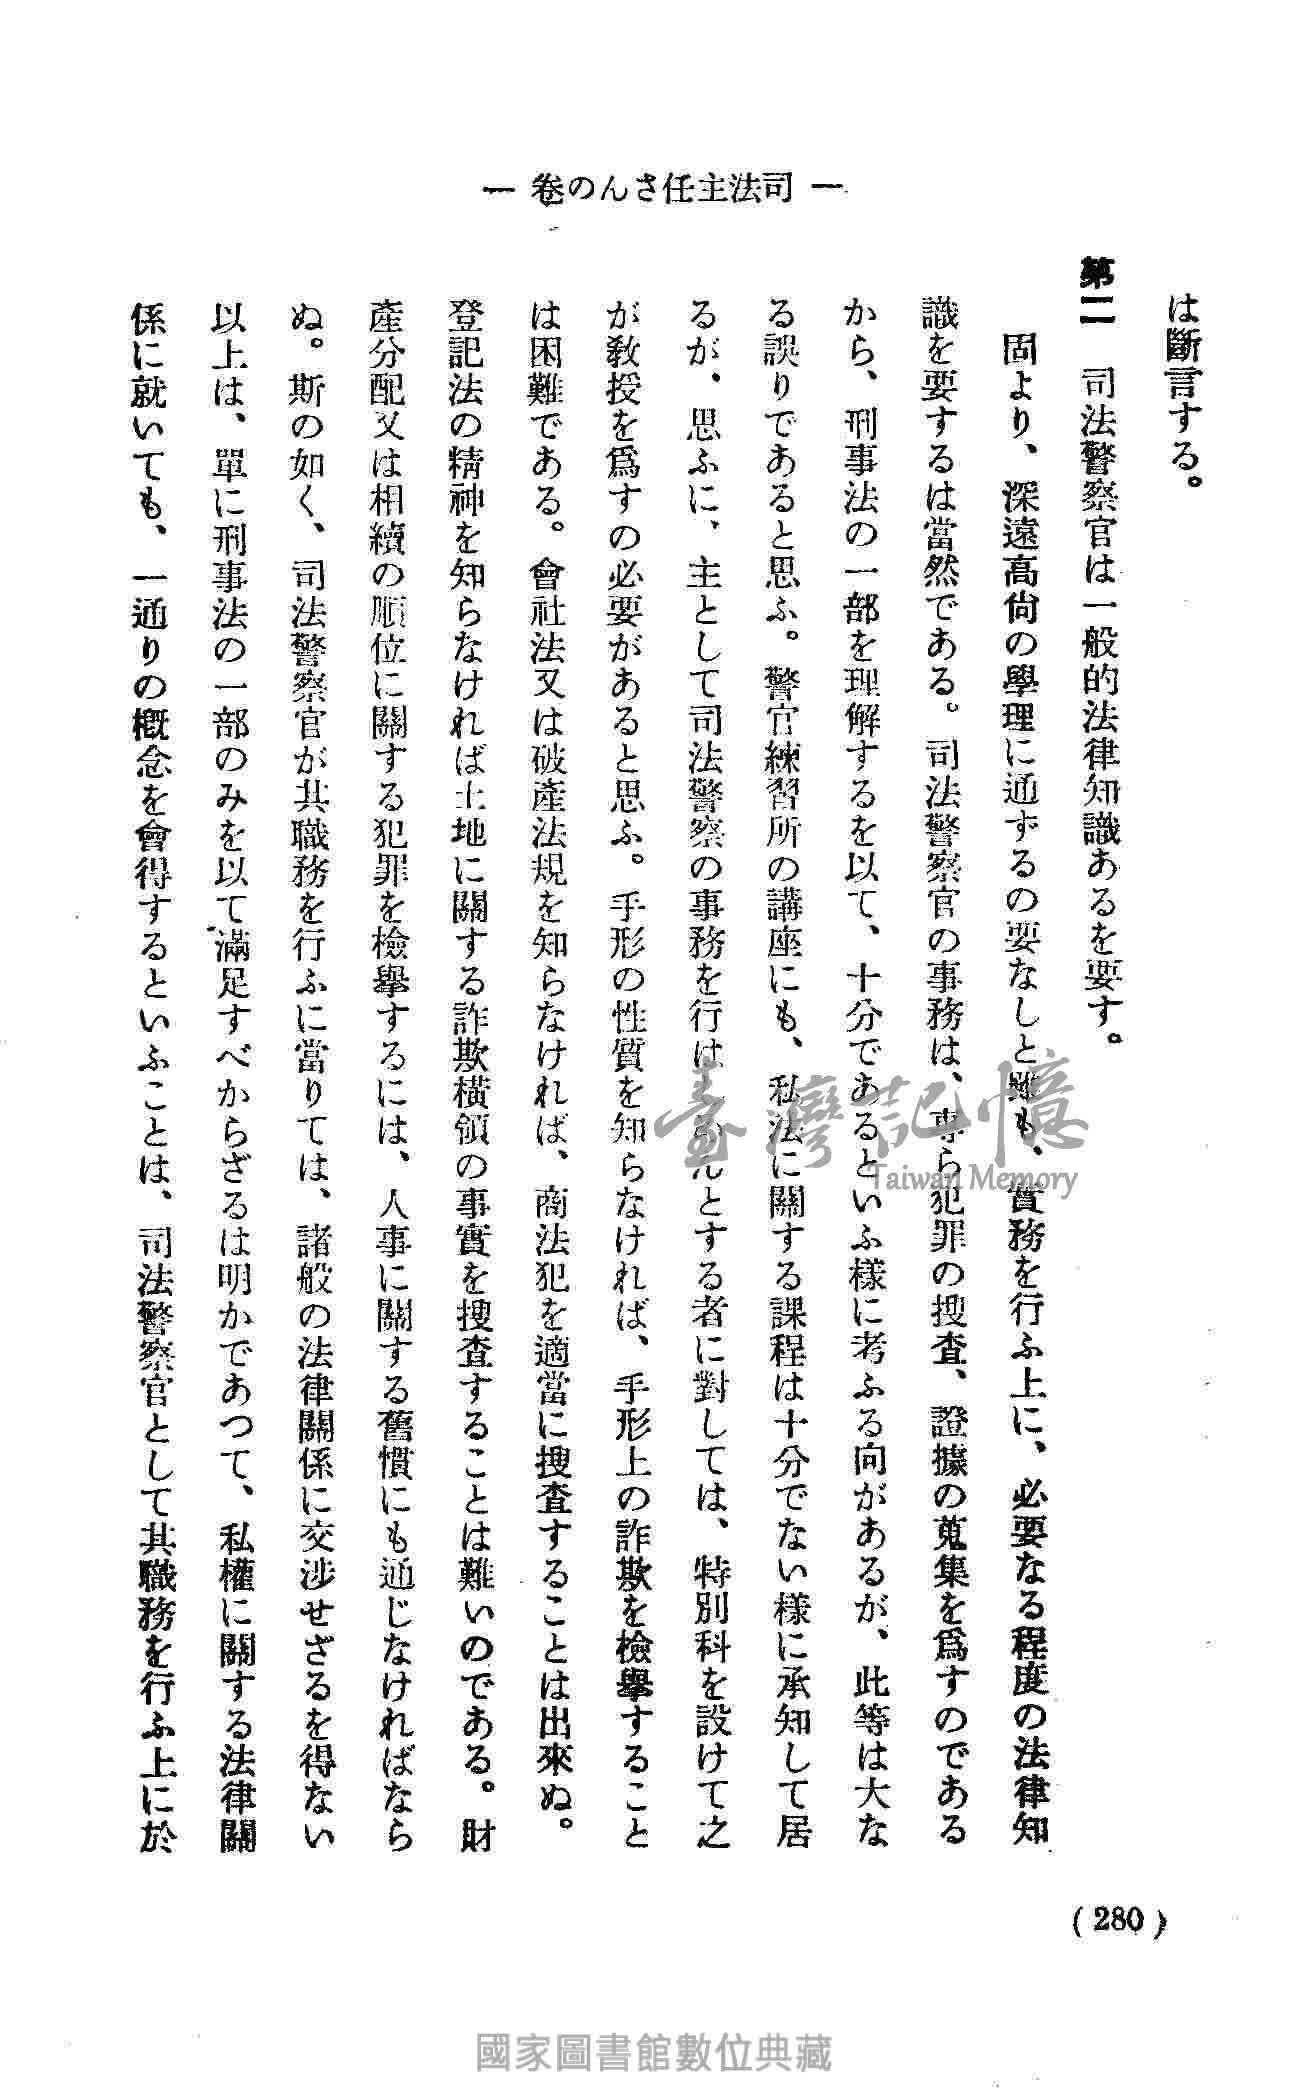 ― 司法主任さんの卷 ―
は斷言する。
第二 司法警察官は一般的法律知識あるを要す。
固より、深遠高尙の學理に通ずるの要なしと雖も、實務を行ふ上に、必要なる程度の法律知
識を要するは當然である。司法警察官の事務は、專ら犯罪の搜査、證據の蒐集を爲すのである
から、刑事法の一部を理解するを以て、十分であるといふ樣に考ふる向があるが、此等は大な
る誤りであると思ふ。警官練習所の講座にも、私法に關する課程は十分でない樣に承知して居
るが、思ふに、主として司法警察の事務を行はしめんとする者に對しては、特別科を設けて之
が敎授を爲すの必要があると思ふ。手形の性質を知らなければ、手形上の詐欺を檢擧すること
は困難である。會社法又は破產法規を知らなければ、商法犯を適當に搜査することは出來ぬ。
登記法の精神を知らなければ土地に關する詐欺橫領の事實を搜査することは難いのである。財
產分配又は相續の順位に關する犯罪を檢擧するには、人事に關する舊慣にも通じなければなら
ぬ。斯の如く、司法警察官が其職務を行ふに當りては、諸般の法律關係に交涉せざるを得ない
以上は、單に刑事法の一部のみを以て滿足すべからざるは明かであつて、私權に關する法律關
係に就いても、一通りの槪念を會得するといふことは、司法警察官として其職務を行ふ上に於
(280)
臺灣記憶
Taiwan Memory
國家圖書館數位典藏